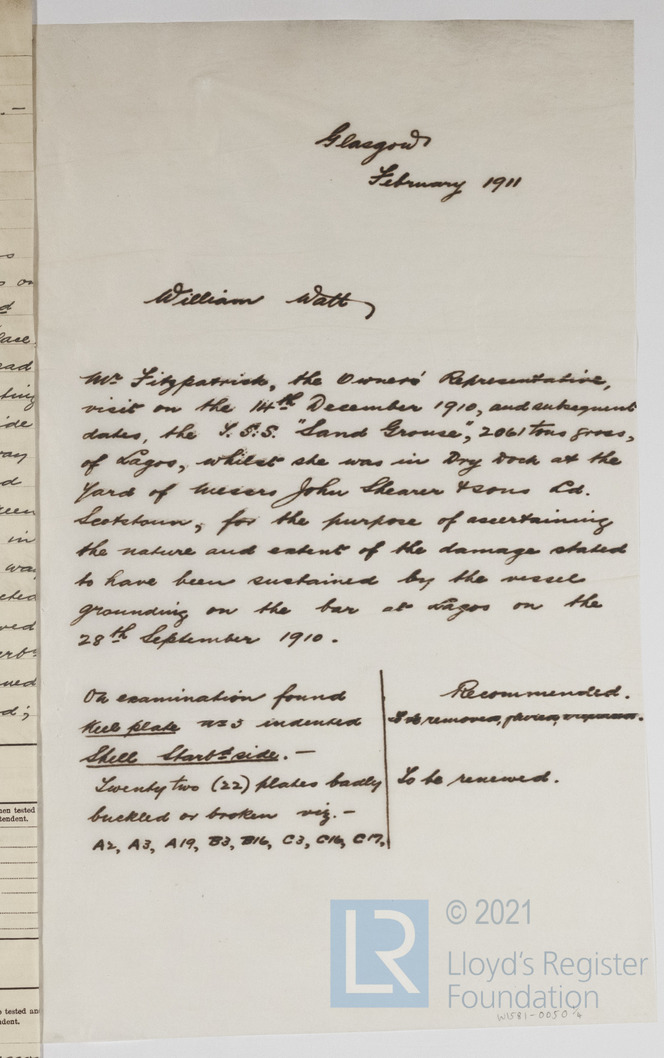 Glasgow
February 1911
William Watt
Mr Fitzpatrick, the Owners' Representative,
visit on the 14th December 1910, and subsequent
dates, the S.S.S. "Sand Grouse", 2061 tons gross,
of Lagos, whilst she was in Dry Dock at the
Yard of Messrs John Shearer & Sons Ld.
Scotstoun, for the purpose of ascertaining
the nature and extent of the damage stated
to have been sustained by the vessel
grounding on the bar at Lagos on the
28th September 1910.
On examination found
Keel plate No 3 indented
Shell Starbd side. —
Twenty two (22) plates badly
buckled or broken viz. —
A2, A3, A19, B3, B16, C3, C16, C17,
Recommended.
To be removed, faired,
To be renewed.
© 2021
LR
Lloyd's Register
Foundation
W1581-0050